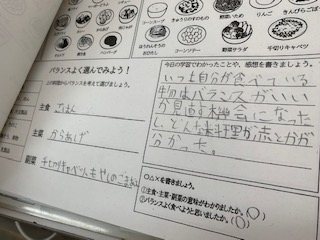 コーンスープ
きゅうりのすのもの
野菜いため
りんご
きんぴらごぼう
ハンバーグ
ほうれんそうのおひたし
コーンソテー
野菜サラダ
千切りキャベツ
バランスよく選んでみよう!
上の献立から
バランスを考えて選びましょう。
主食 ごはん
主菜 からあげ
副菜
もやしのごまあえ
今日の学習でわかったことや、感想を書きましょう。
いつも自分が食べている
物はバランスがいい
か見直す機会になった
し、どんな料理が
分かった。
○△×を書きましょう。
①主食・主菜・副菜の意味がわかりましたか。(○)
②バランスよく食べようと思いましたか。(○)